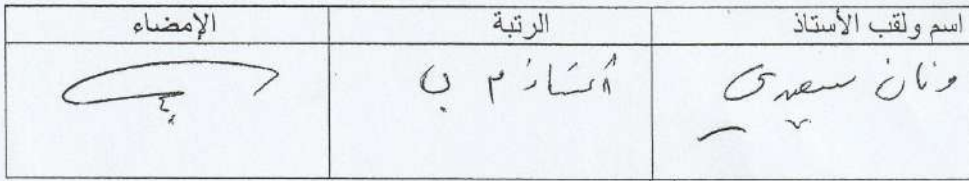 اسم ولقب الأستاذ الرتبة الإمضاء
ونان سعيدي أستاذ م ب